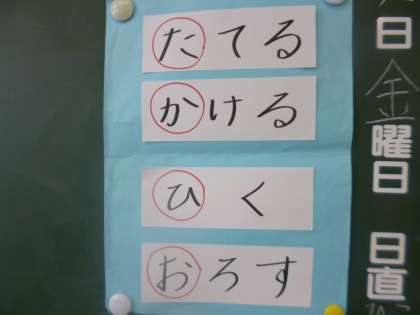 たてる
かける
ひく
おろす
日
金
曜日
日直